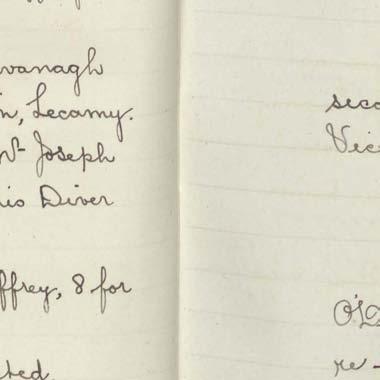 vanagh
n, Lecamy.
Joseph
Diver
ffrey, 8 for
ted
seco
Vice
O'D
re-